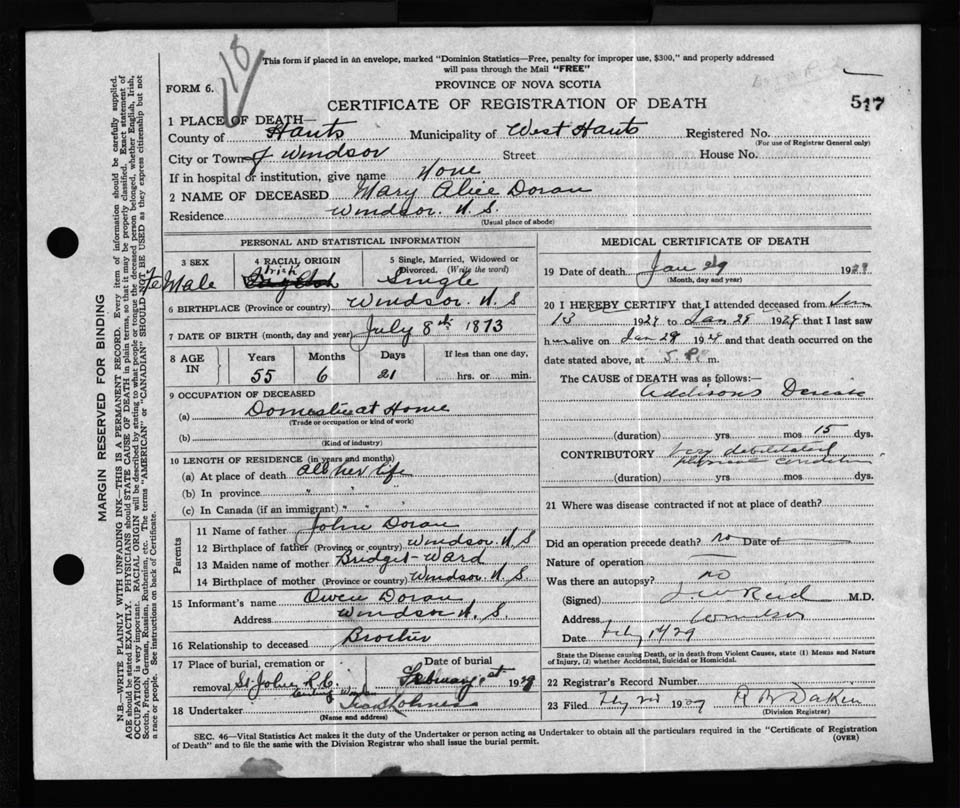 118
This form if placed in an envelope, marked "Dominion Statistics—Free, penalty for improper use, $300," and properly addressed
will pass through the Mail "FREE"
FORM 6.
PROVINCE OF NOVA SCOTIA
CERTIFICATE OF REGISTRATION OF DEATH
517
1 PLACE OF DEATH—
County of Hants Municipality of West Hants Registered No.
(For use of Registrar General only)
City or Town of Windsor Street House No.
If in hospital or institution, give name None
2 NAME OF DECEASED Mary Alice Doran
Residence Windsor. N.S.
(Usual place of abode)
MARGIN RESERVED FOR BINDING
N.B.—WRITE PLAINLY WITH UNFADING INK—THIS IS A PERMANENT RECORD. Every item of information should be carefully supplied.
AGE should be stated EXACTLY. PHYSICIANS should STATE CAUSE OF DEATH in plain terms, so that it may be properly classified. Exact statement of
OCCUPATION is very important. RACIAL ORIGIN will be described by stating to what people or tongue the deceased person belonged, whether English, Irish,
Scotch, French, German, Russian, Ruthenian, etc. The terms "AMERICAN" or "CANADIAN" SHOULD NOT BE USED as they express citizenship but not
a race or people. See instructions on back of Certificate.
PERSONAL AND STATISTICAL INFORMATION
3 SEX
FeMale
4 RACIAL ORIGIN
Irish
English
5 Single, Married, Widowed or
Divorced. (Write the word)
Single
6 BIRTHPLACE (Province or country) Windsor. N.S
7 DATE OF BIRTH (month, day and year) July 8th 1873
8 AGE IN Years Months Days If less than one day,
55 6 21 hrs. or min.
9 OCCUPATION OF DECEASED
(a) Domestic at Home
(Trade or occupation or kind of work)
(b)
(Kind of industry)
10 LENGTH OF RESIDENCE (in years and months)
(a) At place of death all her life
(b) In province " "
(c) In Canada (if an immigrant) " "
Parents
11 Name of father John Doran
12 Birthplace of father (Province or country) Windsor. N.S
13 Maiden name of mother Bridget Ward
14 Birthplace of mother (Province or country) Windsor. N.S.
15 Informant's name Owen Doran
Address Windsor N.S.
16 Relationship to deceased Brother
17 Place of burial, cremation or Date of burial
removal St. John R.C. February 1st 1929
18 Undertaker
(Name and address)
MEDICAL CERTIFICATE OF DEATH
19 Date of death Jan 29 1929
(Month, day and year)
20 I HEREBY CERTIFY that I attended deceased from Jan
13 1929 to Jan 29 1929 that I last saw
h alive on Jan 29 1929 and that death occurred on the
date stated above, at 5 P. m.
The CAUSE OF DEATH was as follows:
Addisons Disease
(duration) yrs mos 15 dys.
CONTRIBUTORY Very debilitated
physical condition
(duration) yrs mos dys
21 Where was disease contracted if not at place of death?
Did an operation precede death? no Date of
Nature of operation
Was there an autopsy? no
(Signed) J W Reid M.D.
Address Windsor
Date Feb 1st 29
State the Disease causing Death, or in death from Violent Causes, state (1) Means and Nature
of Injury, (2) whether Accidental, Suicidal or Homicidal.
22 Registrar's Record Number
23 Filed Feby 2nd 1929 R B Dakin
(Division Registrar)
SEC. 46—Vital Statistics Act makes it the duty of the Undertaker or person acting as Undertaker to obtain all the particulars required in the "Certificate of Registration
of Death" and to file the same with the Division Registrar who shall issue the burial permit.
(OVER)